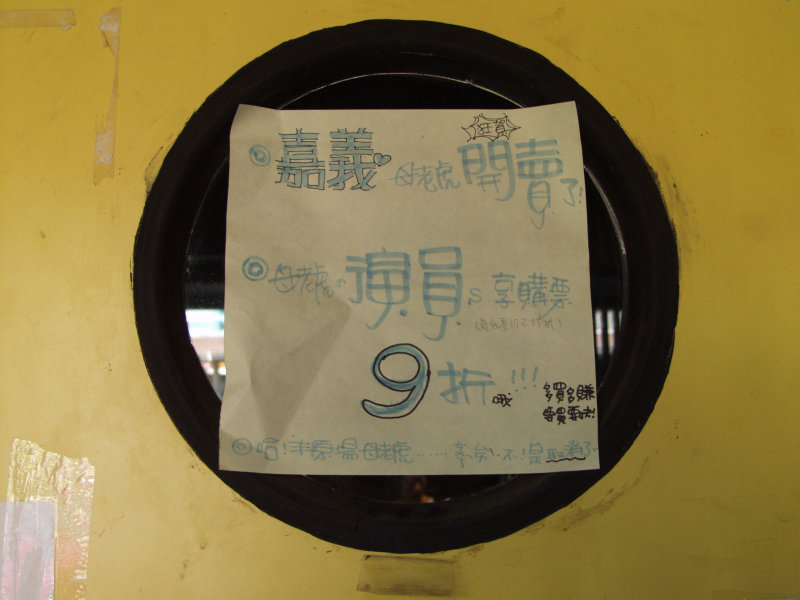 狂賀
嘉義 母老虎開賣了!
母老虎の演員s 享購票
(最低票價不打折)
9折哦!!!
多買多賺
要買要快!
哈!丰原場母老虎……不!是取消了~